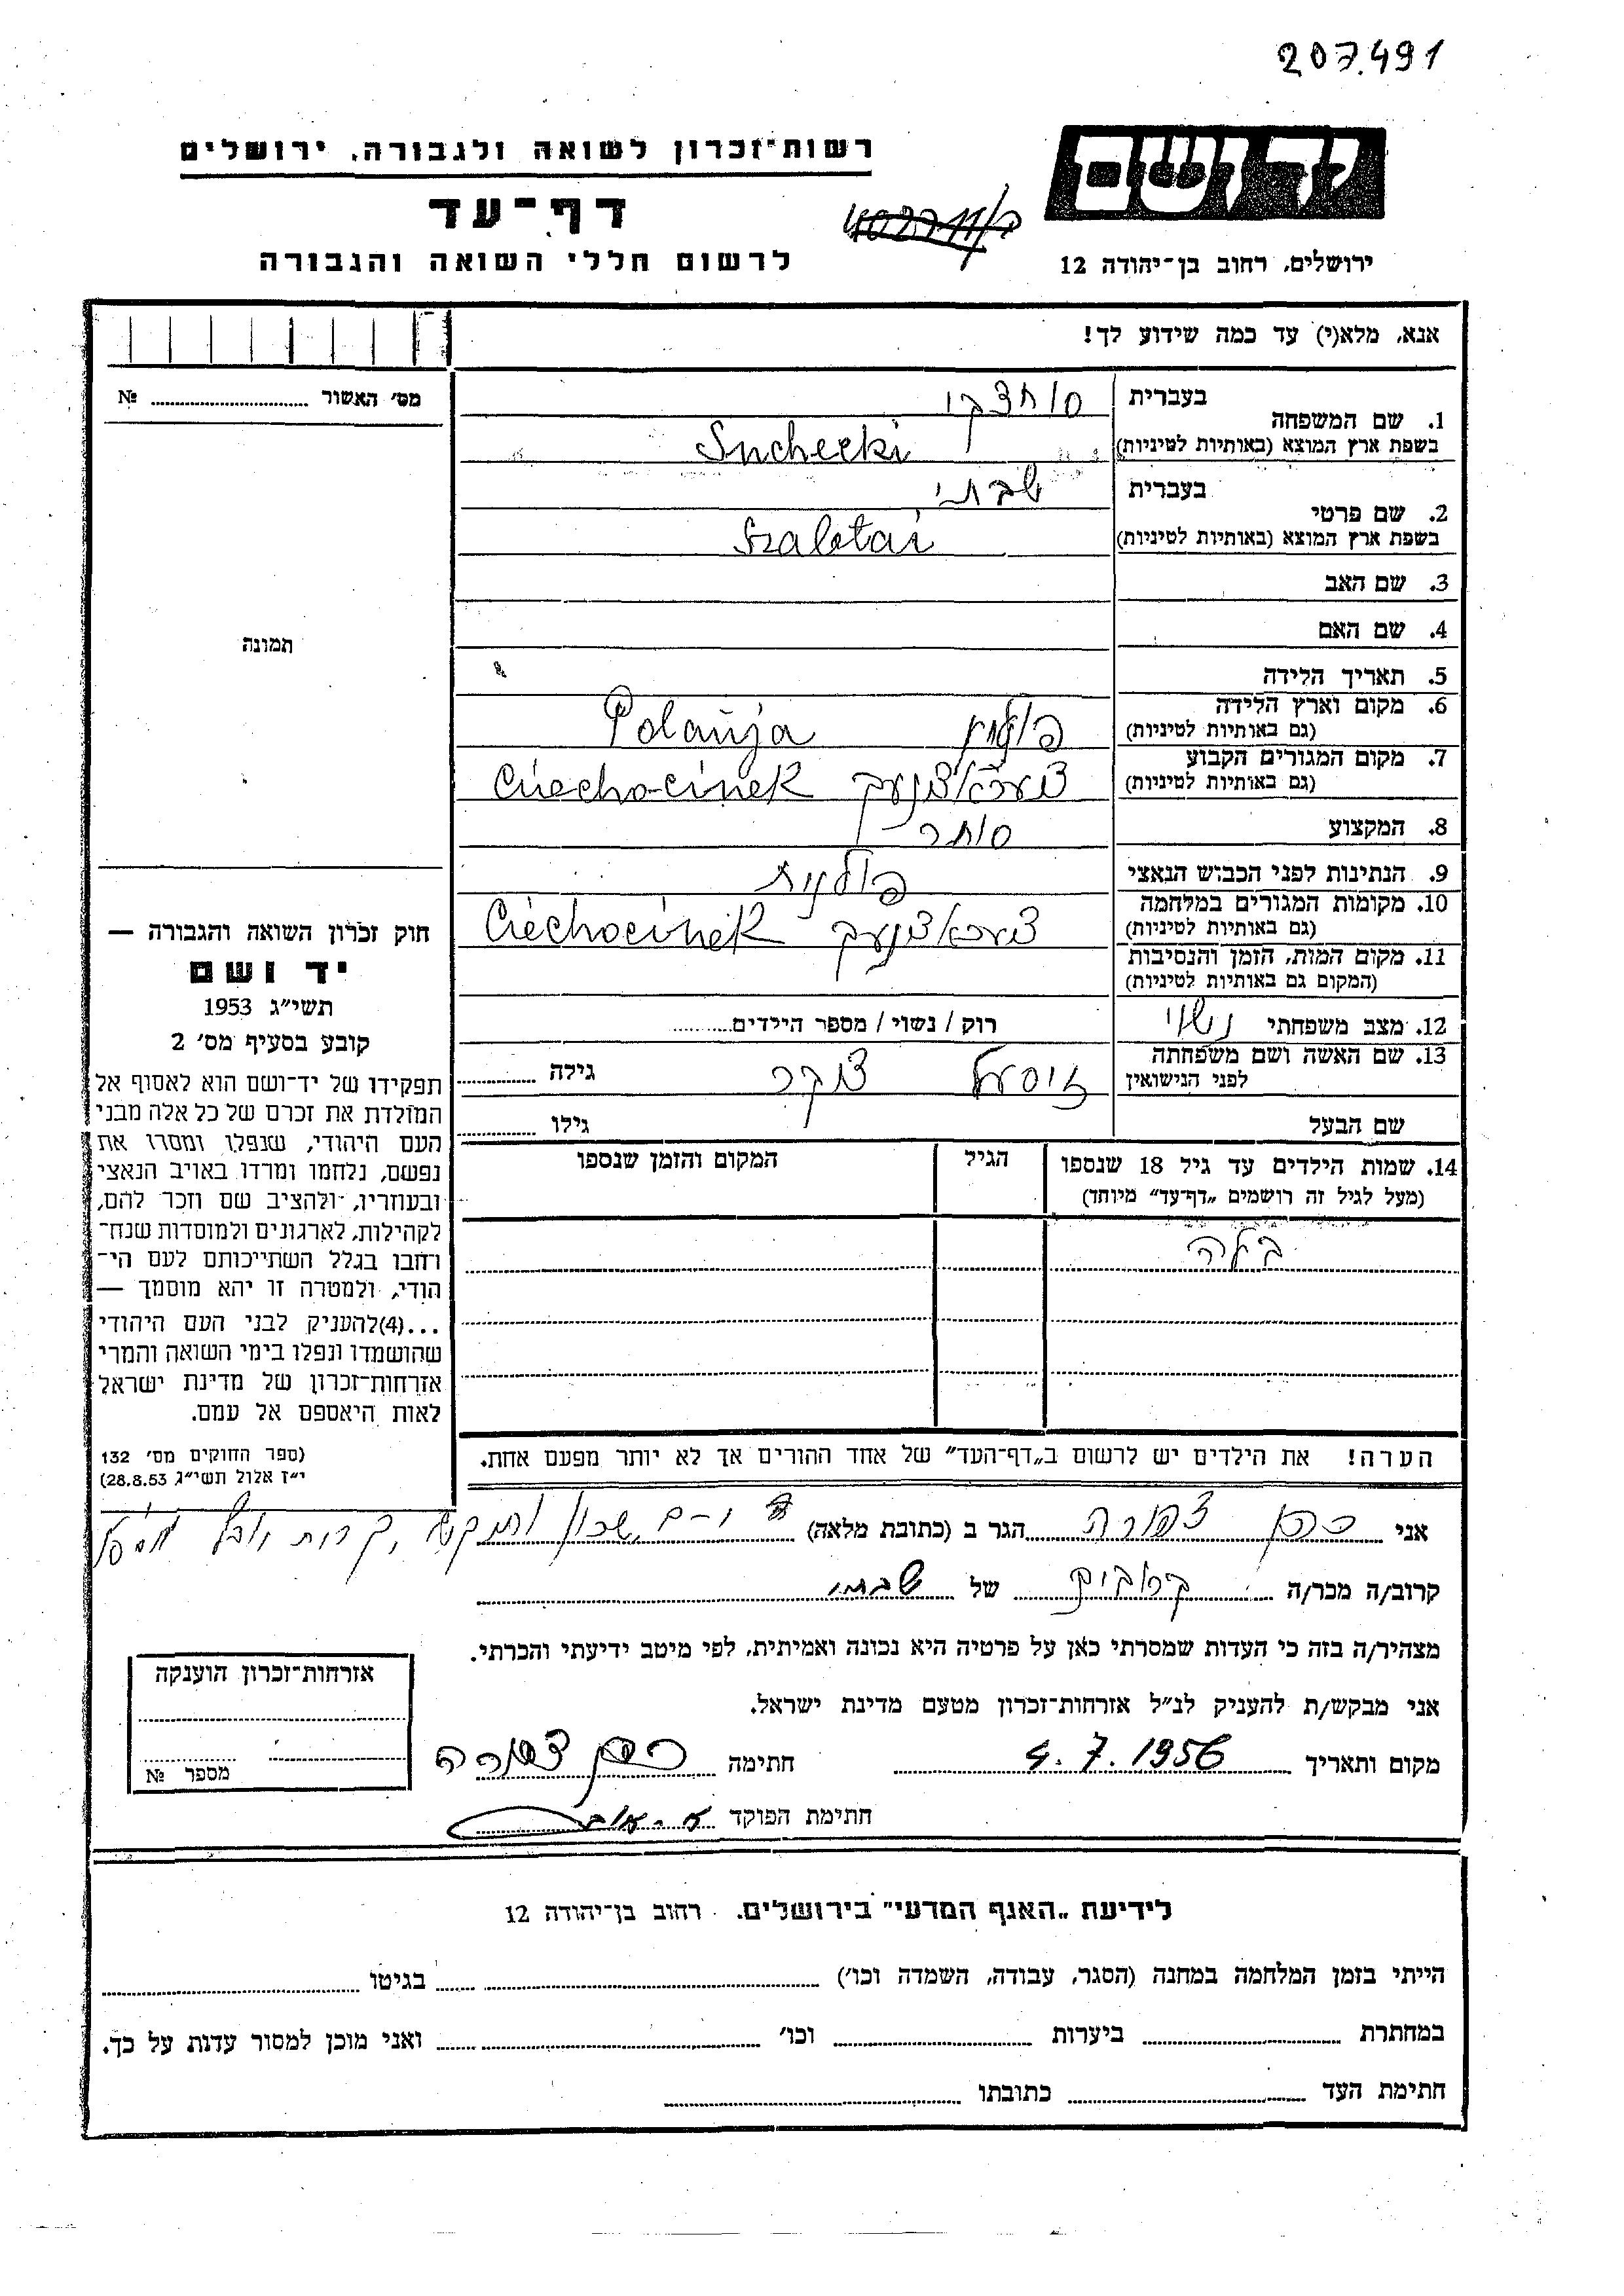 207.491
יד ושם
רשות־זכרון לשואה ולגבורה, ירושלים
דף־עד
לרשום חללי השואה והגבורה
ירושלים, רחוב בן־יהודה 12
אנא, מלא(י) עד כמה שידוע לך!
מס׳ האשור № 
1. שם המשפחה בעברית סוחצקי
בשפת ארץ המוצא (באותיות לטיניות) Suchecki
2. שם פרטי בעברית שבתי
בשפת ארץ המוצא (באותיות לטיניות) Szabtai
3. שם האב
4. שם האם
תמונה
5. תאריך הלידה
6. מקום וארץ הלידה פולין Polanja
(גם באותיות לטיניות)
7. מקום המגורים הקבוע Ciechocinek
(גם באותיות לטיניות)
8. המקצוע סוחר
9. הנתינות לפני הכבוש הנאצי פולנית
10. מקומות המגורים במלחמה Ciechocinek
(גם באותיות לטיניות)
11. מקום המות, הזמן והנסיבות
(המקום גם באותיות לטיניות)
12. מצב משפחתי נשוי רוק / נשוי / מספר הילדים
13. שם האשה ושם משפחתה לפני הנישואין צוקר גילה
שם הבעל גילו
14. שמות הילדים עד גיל 18 שנספו הגיל המקום והזמן שנספו
(מעל לגיל זה רושמים „דף־עד״ מיוחד)
בלה
חוק זכרון השואה והגבורה —
יד ושם
תשי״ג 1953
קובע בסעיף מס׳ 2
תפקידו של יד־ושם הוא לאסוף אל
המולדת את זכרם של כל אלה מבני
העם היהודי, שנפלו ומסרו את
נפשם, נלחמו ומרדו באויב הנאצי
ובעוזריו, ולהציב שם וזכר להם,
לקהילות, לארגונים ולמוסדות שנח־
רחבו בגלל השתייכותם לעם הי־
הודי, ולמטרה זו יהא מוסמך —
...(4)להעניק לבני העם היהודי
שהושמדו ונפלו בימי השואה והמרי
אזרחות־זכרון של מדינת ישראל
לאות היאספם אל עמם.
(ספר החוקים מס׳ 132
י״ז אלול תשי״ג 28.8.53)
הערה! את הילדים יש לרשום ב„דף־העד״ של אחד ההורים אך לא יותר מפעם אחת.
אני כהן צפורה הגר ב (כתובת מלאה) שכון ותיקים
קרוב/ה מכר/ה של שבתי
מצהיר/ה בזה כי העדות שמסרתי כאן על פרטיה היא נכונה ואמיתית, לפי מיטב ידיעתי והכרתי.
אני מבקש/ת להעניק לנ״ל אזרחות־זכרון מטעם מדינת ישראל.
מקום ותאריך 4.7.1956 חתימה כהן צפורה
חתימת הפוקד
אזרחות־זכרון הוענקה
מספר №
לידיעת „האגף המדעי״ בירושלים. רחוב בן־יהודה 12
הייתי בזמן המלחמה במחנה (הסגר, עבודה, השמדה וכו׳) בגיטו
במחתרת ביערות וכו׳ ואני מוכן למסור עדות על כך.
חתימת העד כתובתו